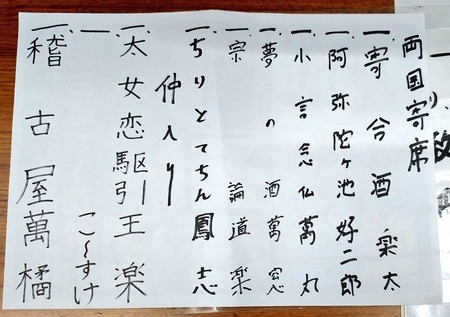 両国寄席
一、寄合酒 楽太
一、阿弥陀ヶ池 好二郎
一、小言念仏 萬丸
一、夢の酒 萬窓
一、宗論 道楽
一、ちりとてちん 鳳志
仲入り
一、太女恋駆引 王楽
一、 こ〜すけ
一、稽古屋 萬橘